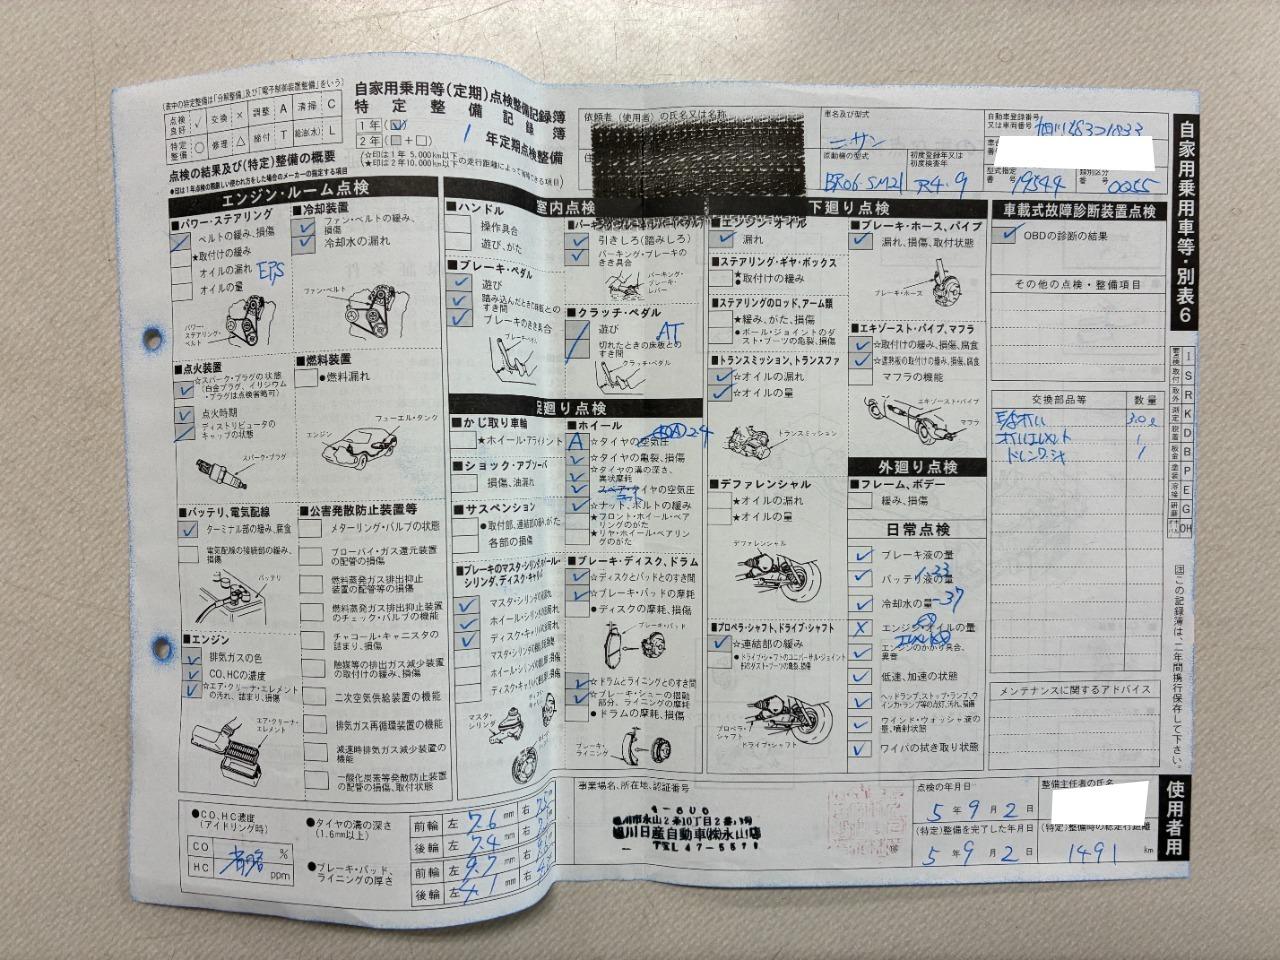 (表中の特定整備は「分解整備」及び「電子制御装置整備」をいう)
点検良好 ✓ 交換 × 調整 A 清掃 C
特定整備 ○ 修理 △ 締付 T 給油(水) L
自家用乗用等(定期)点検整備記録簿
特定整備記録簿
1年(☑)
2年(□+□)
1 年定期点検整備
(☆印は1年 5,000km以下
(★印は2年10,000km以下の走行距離によって省略できる項目)
点検の結果及び(特定)整備の概要
●印は1年点検の際厳しい使われ方をした場合のメーカーの指定する項目
依頼者(使用者)の氏名又は名称
車名及び型式
ニサン
自動車登録番号又は車両番号
原動機の型式
BR06-SM21
初度登録年又は初度検査年
R4.9
型式指定番号
19544
類別区分番号
0055
自家用乗用車等・別表6
エンジン・ルーム点検
■パワー・ステアリング
ベルトの緩み、損傷
★取付けの緩み
オイルの漏れ EPS
オイルの量
パワー・ステアリング・ベルト
■冷却装置
ファン・ベルトの緩み、損傷
冷却水の漏れ
ファン・ベルト
■点火装置
☆スパーク・プラグの状態
(白金プラグ、イリジウム・プラグは点検省略可)
点火時期
ディストリビュータのキャップの状態
スパーク・プラグ
■燃料装置
●燃料漏れ
フューエル・タンク
エンジン
■バッテリ、電気配線
ターミナル部の緩み、腐食
電気配線の接続部の緩み、損傷
バッテリ
■エンジン
排気ガスの色
CO、HCの濃度
☆エア・クリーナ・エレメントの汚れ、詰まり、損傷
エア・クリーナ・エレメント
■公害発散防止装置等
メターリング・バルブの状態
ブローバイ・ガス還元装置の配管の損傷
燃料蒸発ガス排出抑止装置の配管等の損傷
燃料蒸発ガス排出抑止装置のチェック・バルブの機能
チャコール・キャニスタの詰まり、損傷
触媒等の排出ガス減少装置の取付けの緩み、損傷
二次空気供給装置の機能
排気ガス再循環装置の機能
減速時排気ガス減少装置の機能
一酸化炭素等発散防止装置の配管の損傷、取付状態
室内点検
■ハンドル
操作具合
遊び、がた
■ブレーキ・ペダル
遊び
踏み込んだときの床板とのすき間
ブレーキのきき具合
ブレーキ・ペダル
引きしろ(踏みしろ)
パーキング・ブレーキのきき具合
パーキング・ブレーキ・レバー
■クラッチ・ペダル
遊び AT
切れたときの床板とのすき間
クラッチ・ペダル
足廻り点検
■かじ取り車輪
★ホイール・アライメント
■ショック・アブソーバ
損傷、油漏れ
■サスペンション
●取付部、連結部の緩み、がた
各部の損傷
■ブレーキのマスタ・シリンダ、ホイール・シリンダ、ディスク・キャリパ
マスタ・シリンダの液漏れ
ホイール・シリンダの液漏れ
ディスク・キャリパの液漏れ
マスタ・シリンダ
■ホイール
A ☆タイヤの空気圧 2.4
☆タイヤの亀裂、損傷
☆タイヤの溝の深さ、異状摩耗
スペア・タイヤの空気圧
☆ナット、ボルトの緩み
★フロント・ホイール・ベアリングのがた
★リヤ・ホイール・ベアリングのがた
■ブレーキ・ディスク、ドラム
☆ディスクとパッドとのすき間
☆ブレーキ・パッドの摩耗
●ディスクの摩耗、損傷
ブレーキ・パッド
☆ドラムとライニングとのすき間
☆ブレーキ・シューの摺動部分、ライニングの摩耗
●ドラムの摩耗、損傷
ブレーキ・ライニング
下廻り点検
■エンジン・オイル
漏れ
■ステアリング・ギヤ・ボックス
★取付けの緩み
■ステアリングのロッド、アーム類
★緩み、がた、損傷
●ボール・ジョイントのダスト・ブーツの亀裂、損傷
■トランスミッション、トランスファ
☆オイルの漏れ
☆オイルの量
トランスミッション
■デファレンシャル
★オイルの漏れ
★オイルの量
デファレンシャル
■プロペラ・シャフト、ドライブ・シャフト
☆連結部の緩み
●ドライブ・シャフトのユニバーサル・ジョイント部のダスト・ブーツの亀裂、損傷
プロペラ・シャフト
ドライブ・シャフト
■ブレーキ・ホース、パイプ
漏れ、損傷、取付状態
ブレーキ・ホース
■エキゾースト・パイプ、マフラ
☆取付けの緩み、損傷、腐食
☆遮熱板の取付けの緩み、損傷、腐食
マフラの機能
エキゾースト・パイプ
マフラ
外廻り点検
■フレーム、ボデー
緩み、損傷
日常点検
ブレーキ液の量
バッテリ液の量 1.33
冷却水の量 -37
エンジン・オイルの量
エンジンのかかり具合、異音
低速、加速の状態
ヘッドランプ、ストップ・ランプ、ウインカ・ランプ等の点灯、汚れ、損傷
ウインド・ウォッシャ液の量、噴射状態
ワイパの拭き取り状態
車載式故障診断装置点検
OBDの診断の結果
その他の点検・整備項目
交換部品等 数量
3.0ℓ
オイルエレメント 1
ドレンワッシャ 1
メンテナンスに関するアドバイス
I
S
R
K
D
B
P
E
G
OH
図この記録簿は、二年間携行保存して下さい。
使用者用
●CO、HC濃度
(アイドリング時)
CO %
HC ppm
省略
●タイヤの溝の深さ
(1.6mm以上)
前輪 左 7.6 mm 右
後輪 左 7.4 mm 右
●ブレーキ・パッド、ライニングの厚さ
前輪 左 9.7 mm 右
後輪 左 4.1 mm 右
事業場名、所在地、認証番号
旭川市永山2条10丁目2番
旭川日産自動車(株)永山店
点検の年月日
5年 9月 2日
(特定)整備を完了した年月日
5年 9月 2日
整備主任者の氏名
(特定)整備時の総走行距離
1491 km